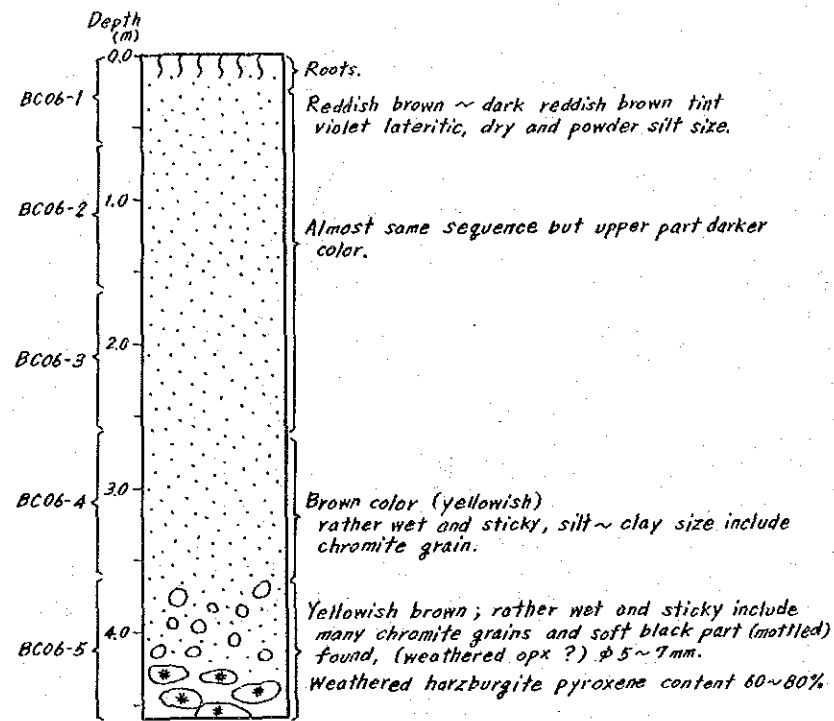 Depth
(m)
0.0
Roots.
BC06-1
Reddish brown ~ dark reddish brown tint
violet lateritic, dry and powder silt size.
1.0
BC06-2
Almost same sequence but upper part darker
color.
2.0
BC06-3
3.0
BC06-4
Brown color (yellowish)
rather wet and sticky, silt ~ clay size include
chromite grain.
4.0
BC06-5
Yellowish brown ; rather wet and sticky include
many chromite grains and soft black part (mottled)
found, (weathered opx ?) φ 5 ~ 7 mm.
Weathered harzburgite pyroxene content 60 ~ 80%